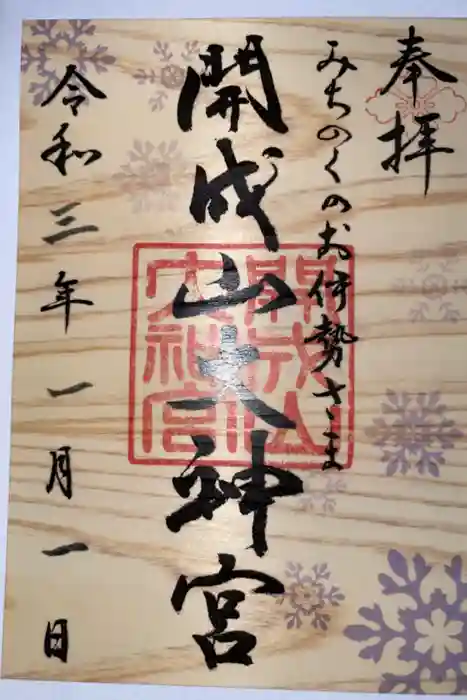 奉拝
みちのくのお伊勢さま
開成山大神宮
開成山
大神宮
令和三年一月一日